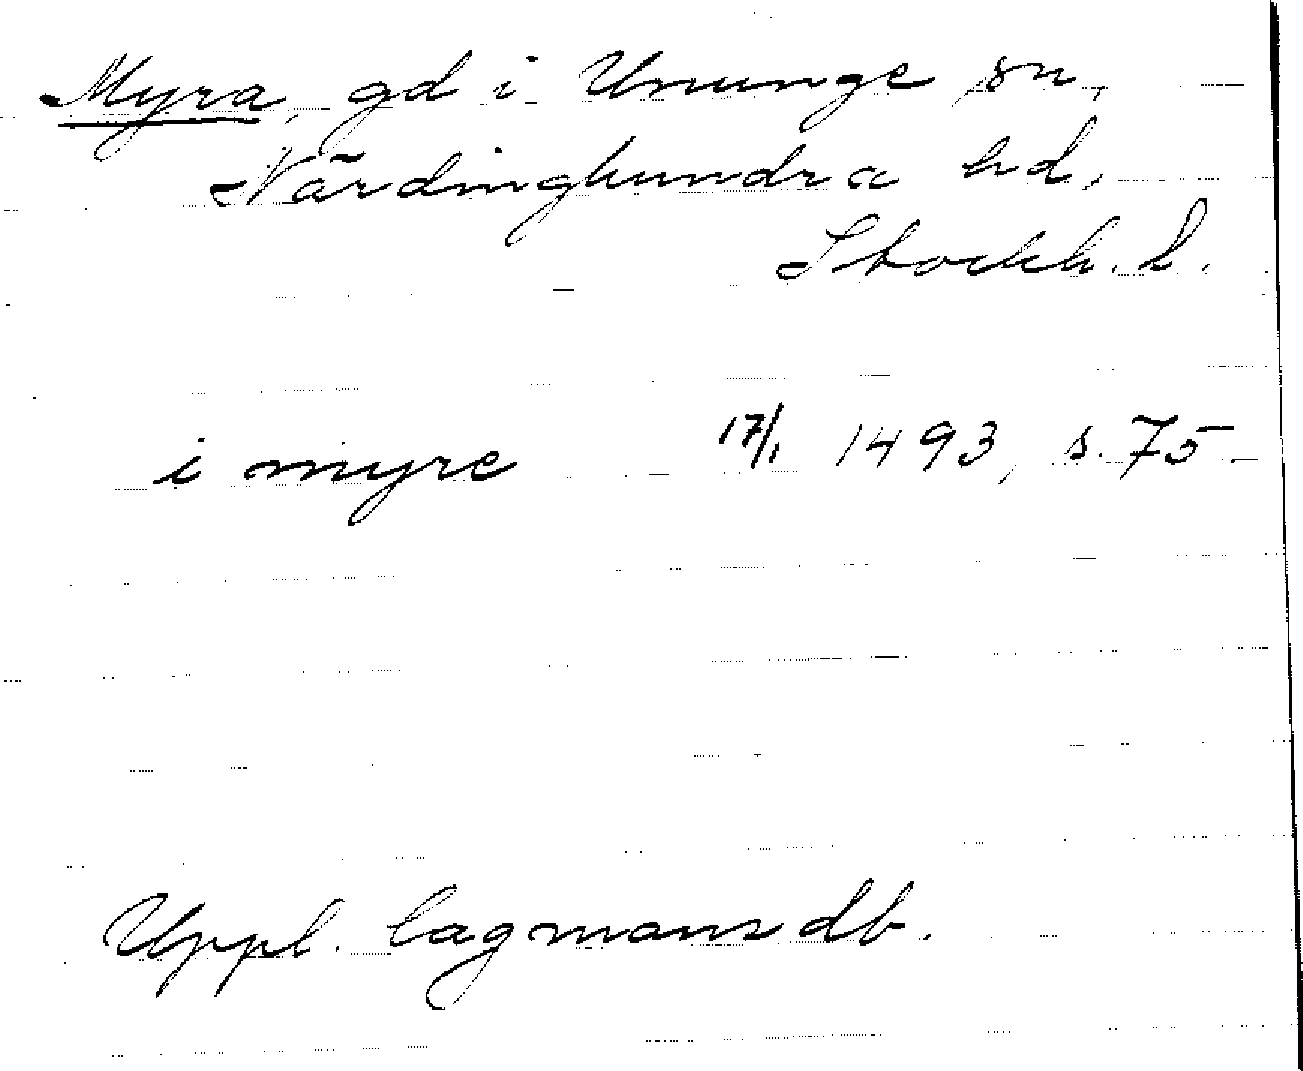 Myra, gd i Ununge sn,
Närdinghundra hd,
Stockh. l.
i myre 17/1 1493, s. 75.
Uppl. lagmansdb.